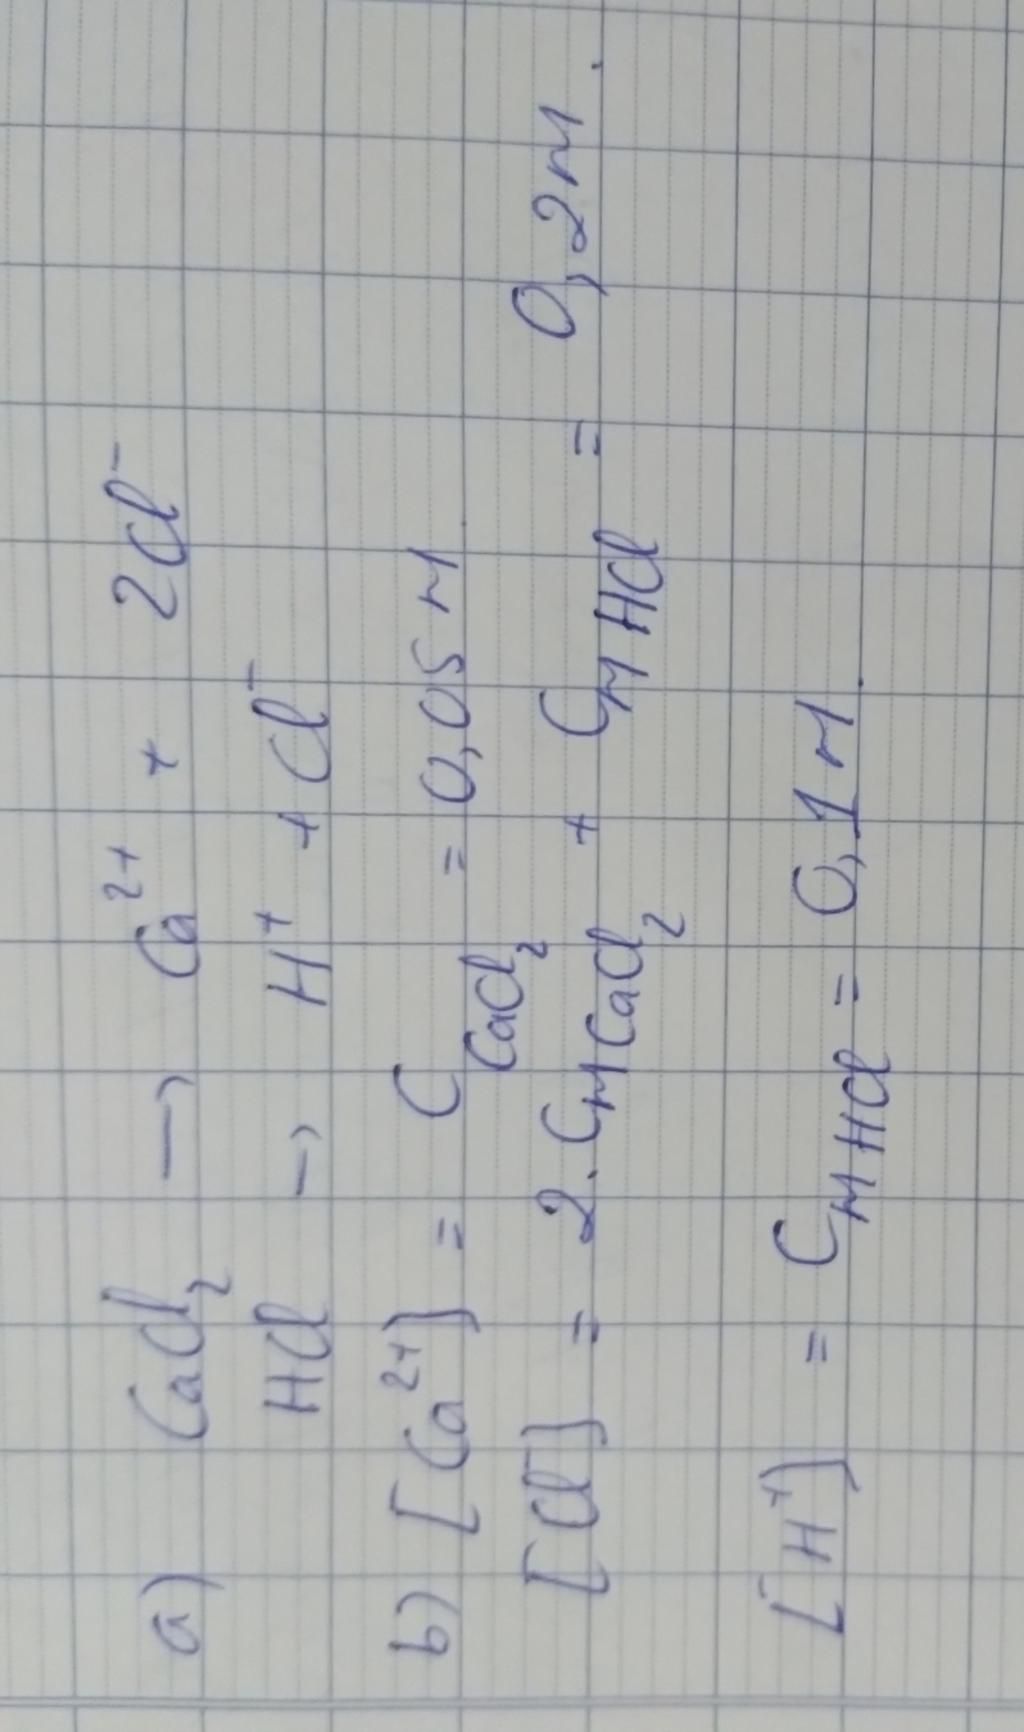 a) CaCl₂ → Ca²⁺ + 2Cl⁻
HCl → H⁺ + Cl⁻
b) [Ca²⁺] = C CaCl₂ = 0,05 M
[Cl⁻] = 2. CM CaCl₂ + CM HCl = 0,2M.
[H⁺] = CM HCl = 0,1M.